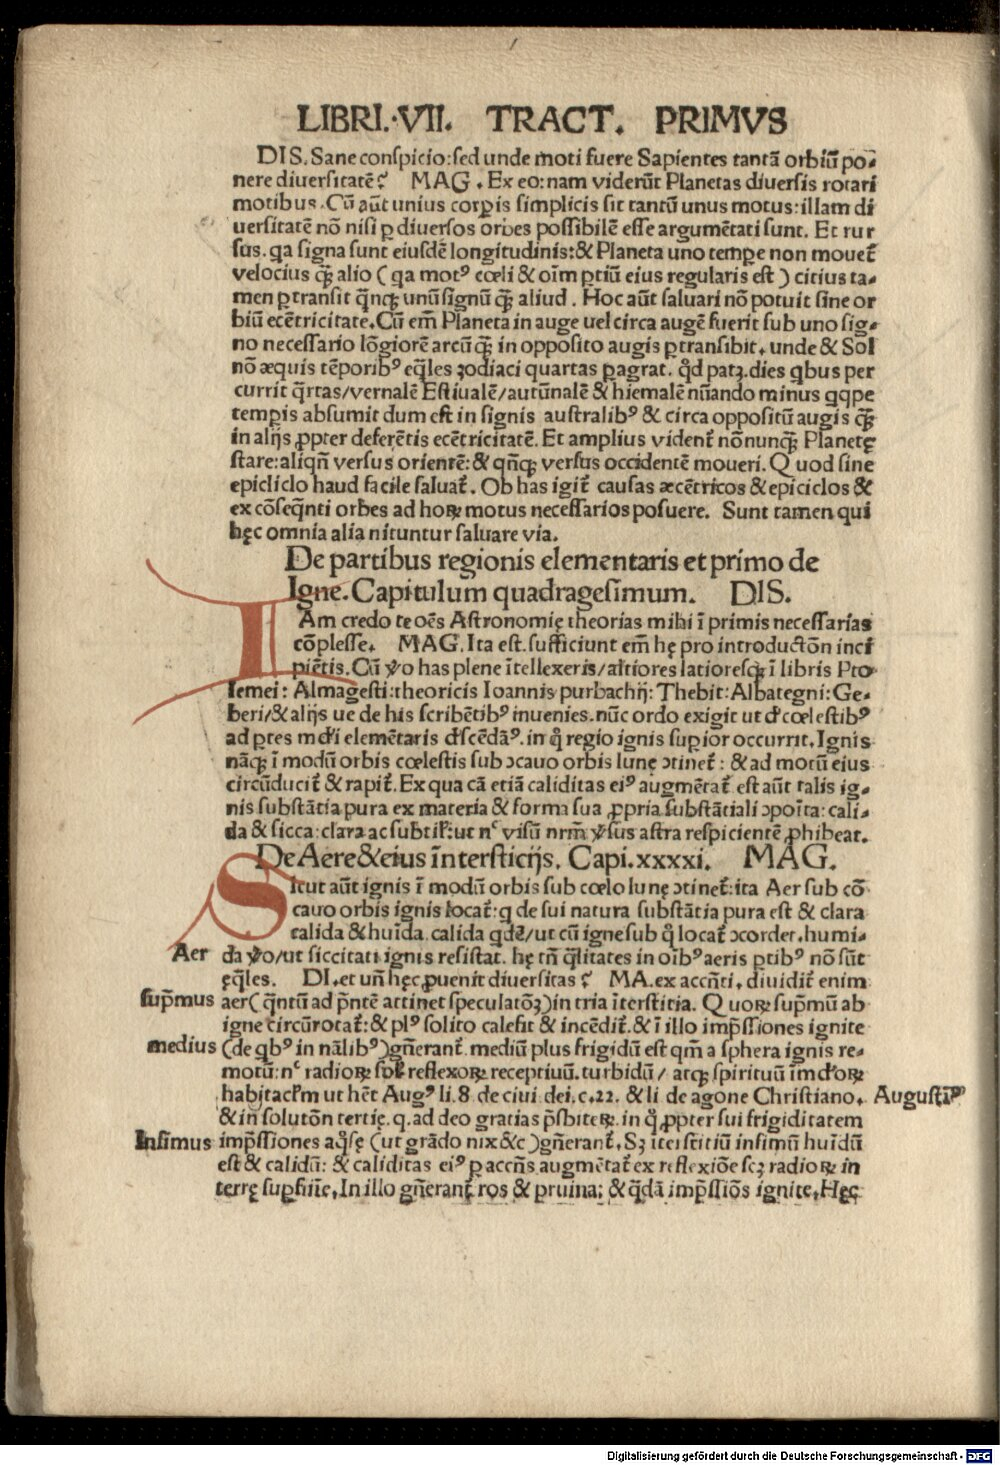 LIBRI.·VII. TRACT. PRIMVS
DIS. Sane conspicio: sed unde moti fuere Sapientes tantā orbiū po-
nere diuersitatē? MAG. Ex eo: nam viderūt Planetas diuersis rotari
motibus. Cū aūt unius corꝑis simplicis sit tantū unus motus: illam di
uersitatē nō nisi ꝑ diuersos orbes possibilē esse argumētati sunt. Et rur
sus. qa signa sunt eiusdē longitudinis: & Planeta uno tempe non mouet᷑
velocius qȝ alio (qa motꝰ cœli & oīm ꝑtiū eius regularis est) citius ta-
men ꝑtransit q̄nqȝ unū signū qȝ aliud. Hoc aūt saluari nō potuit sine or
biū ecētricitate. Cū em̄ Planeta in auge uel circa augē fuerit sub uno sig-
no necessario lōgiorē arcū qȝ in opposito augis ꝑtransibit. unde & Sol
nō æquis tēporibꝰ eq̄les ʒodiaci quartas ꝑagrat. qd̄ patȝ. dies qbus per
currit q̄rtas/vernalē Estiualē/autūnalē & hiemalē nūando minus qqpe
tempis absumit dum est in signis australibꝰ & circa oppositū augis qȝ
in alijs ꝓpter deferētis ecētricitatē. Et amplius vident᷑ nōnunqȝ Planetę
stare: aliqn̄ versus orientē: & qn̄qȝ versus occidentē moueri. Quod sine
epicliclo haud facile saluat᷑. Ob has igit᷑ causas æcētricos & epiciclos &
ex cōseq̄nti orbes ad hoꝝ motus necessarios posuere. Sunt tamen qui
hęc omnia alia nituntur saluare via.
De partibus regionis elementaris et primo de
Igne. Capitulum quadragesimum. DIS.
IAm credo te oēs Astronomię theorias mihi ī primis necessarias
cōplesse. MAG. Ita est. sufficiunt em̄ hę pro introductōn inci
piētis. Cū ꝟo has plene ītellexeris/altiores latioresqȝ ī libris Pto
lemei: Almagesti: theoricis Ioannis purbachij: Thebit: Albategni: Ge-
beri/& alijs ue de his scribētibꝰ inuenies. nūc ordo exigit ut d̕ cœlestibꝰ
ad ꝑtes mūdi elemētaris d̕scēdāꝰ. in q̄ regio ignis supior occurrit. Ignis
nāqȝ ī modū orbis cœlestis sub ↄcauo orbis lunę ↄtinet᷑: & ad motū eius
circūducit᷑ & rapit᷑. Ex qua cā etiā caliditas eiꝰ augmētat᷑ est aūt talis ig-
nis substātia pura ex materia & forma sua ꝓpria substātiali ↄpoīta: cali-
da & sicca: clara ac subtil᷑: ut nᶜ visū nrm̄ ꝟsus astra respicientē ꝓhibeat.
De Aere & eius īntersticijs. Capi. xxxxi. MAG.
SIcut aūt ignis ī modū orbis sub cœlo lunę ↄtinet᷑: ita Aer sub cō
cauo orbis ignis locat᷑: q de sui natura substātia pura est & clara
calida & huīda. calida qdē/ut cū igne sub q̄ locat᷑ ↄcordet. humi-
Aer da ꝟo/ut siccitati ignis resistat. hę tn̄ q̄litates in oībꝰ aeris ꝑtibꝰ nō sūt
ęq̄les. DI. et un̄ hęc ꝓuenit diuersitas? MA. ex accn̄ti. diuidit᷑ enim
supm̄us aer (q̄ntū ad p̄ntē attinet speculatōȝ) in tria īterstitia. Quoꝝ supm̄ū ab
igne circūrotat᷑: & plꝰ solito calefit & incēdit᷑. & ī illo imp̄ssiones ignite
medius (de qbꝰ in nālibꝰ) gn̄erant᷑. mediū plus frigidū est qm̄ a sphera ignis re-
motū: nᶜ radioꝝ sol᷑ reflexoꝝ receptiuū. turbidū/ atqȝ spirituū īmūdoꝝ
habitacl̄m ut hēt Augꝰ li. 8. de ciui dei. c. 22. & li. de agone Christiano. Augustīꝰ
& in solutōn tertię. q. ad deo gratias p̄sbiteꝝ. in q̄ ꝓpter sui frigiditatem
Infimus imp̄ssiones aq̄sę (ut grādo nix &c) gn̄erant᷑. Sȝ iterstitiū infimū huīdū
est & calidū: & caliditas eiꝰ ꝑ accn̄s augmētat᷑ ex reflexiōe scȝ radioꝝ in
terrę supfīie. In illo gn̄erant᷑ ros & pruina: & q̄dā imp̄ssiōs ignite. Hęc
Digitalisierung gefördert durch die Deutsche Forschungsgemeinschaft - DFG